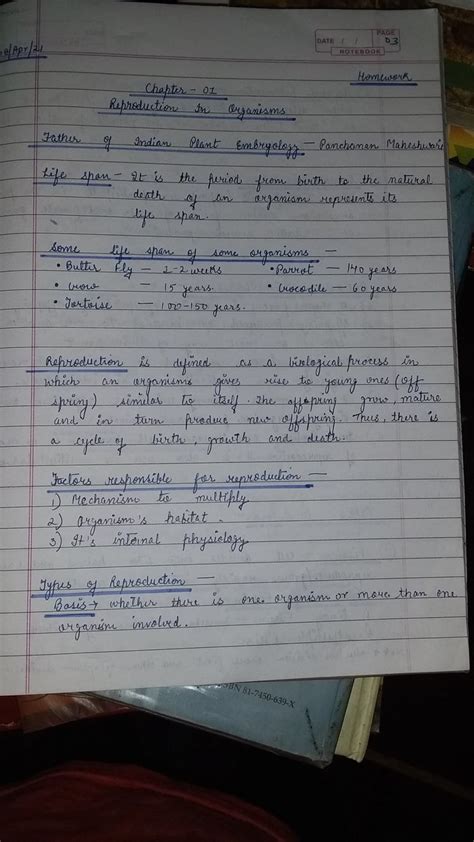 /Apr/21
DATE / / PAGE 03
NOTEBOOK
Homework
Chapter - 01
Reproduction In Organisms
Father of Indian Plant Embryology - Panchanan Maheshwari
Life span - It is the period from birth to the natural
death of an organism represents its
life span.
Some life span of some organisms -
• Butter fly - 2-2 weeks • Parrot - 140 years
• Crow - 15 years. • Crocodile - 60 years
• Tortoise - 100-150 years.
Reproduction is defined as a biological process in
which an organisms gives rise to young ones (off
spring) similar to itself. The offspring grow, mature
and in turn produce new offspring. Thus, there is
a cycle of birth, growth and death.
Factors responsible for reproduction -
1) Mechanism to multiply
2) Organism's habitat.
3) It's internal physiology
Types of Reproduction -
Basis → whether there is one organism or more than one
organism involved.
ISBN 81-7450-639-X